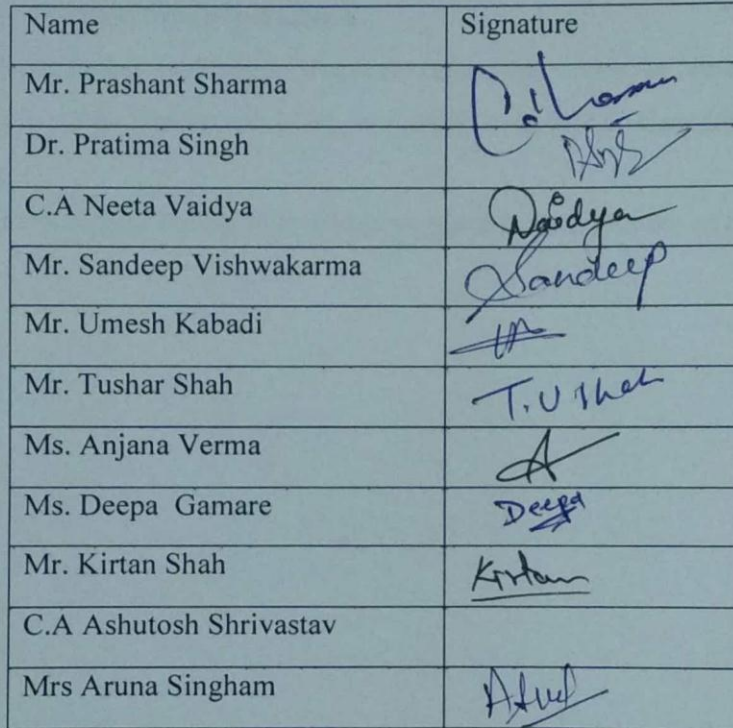 Name Signature
Mr. Prashant Sharma
Dr. Pratima Singh
C.A Neeta Vaidya Vaidya
Mr. Sandeep Vishwakarma Sandeep
Mr. Umesh Kabadi
Mr. Tushar Shah T.U Shah
Ms. Anjana Verma A
Ms. Deepa Gamare Deepa
Mr. Kirtan Shah Kirtan
C.A Ashutosh Shrivastav
Mrs Aruna Singham